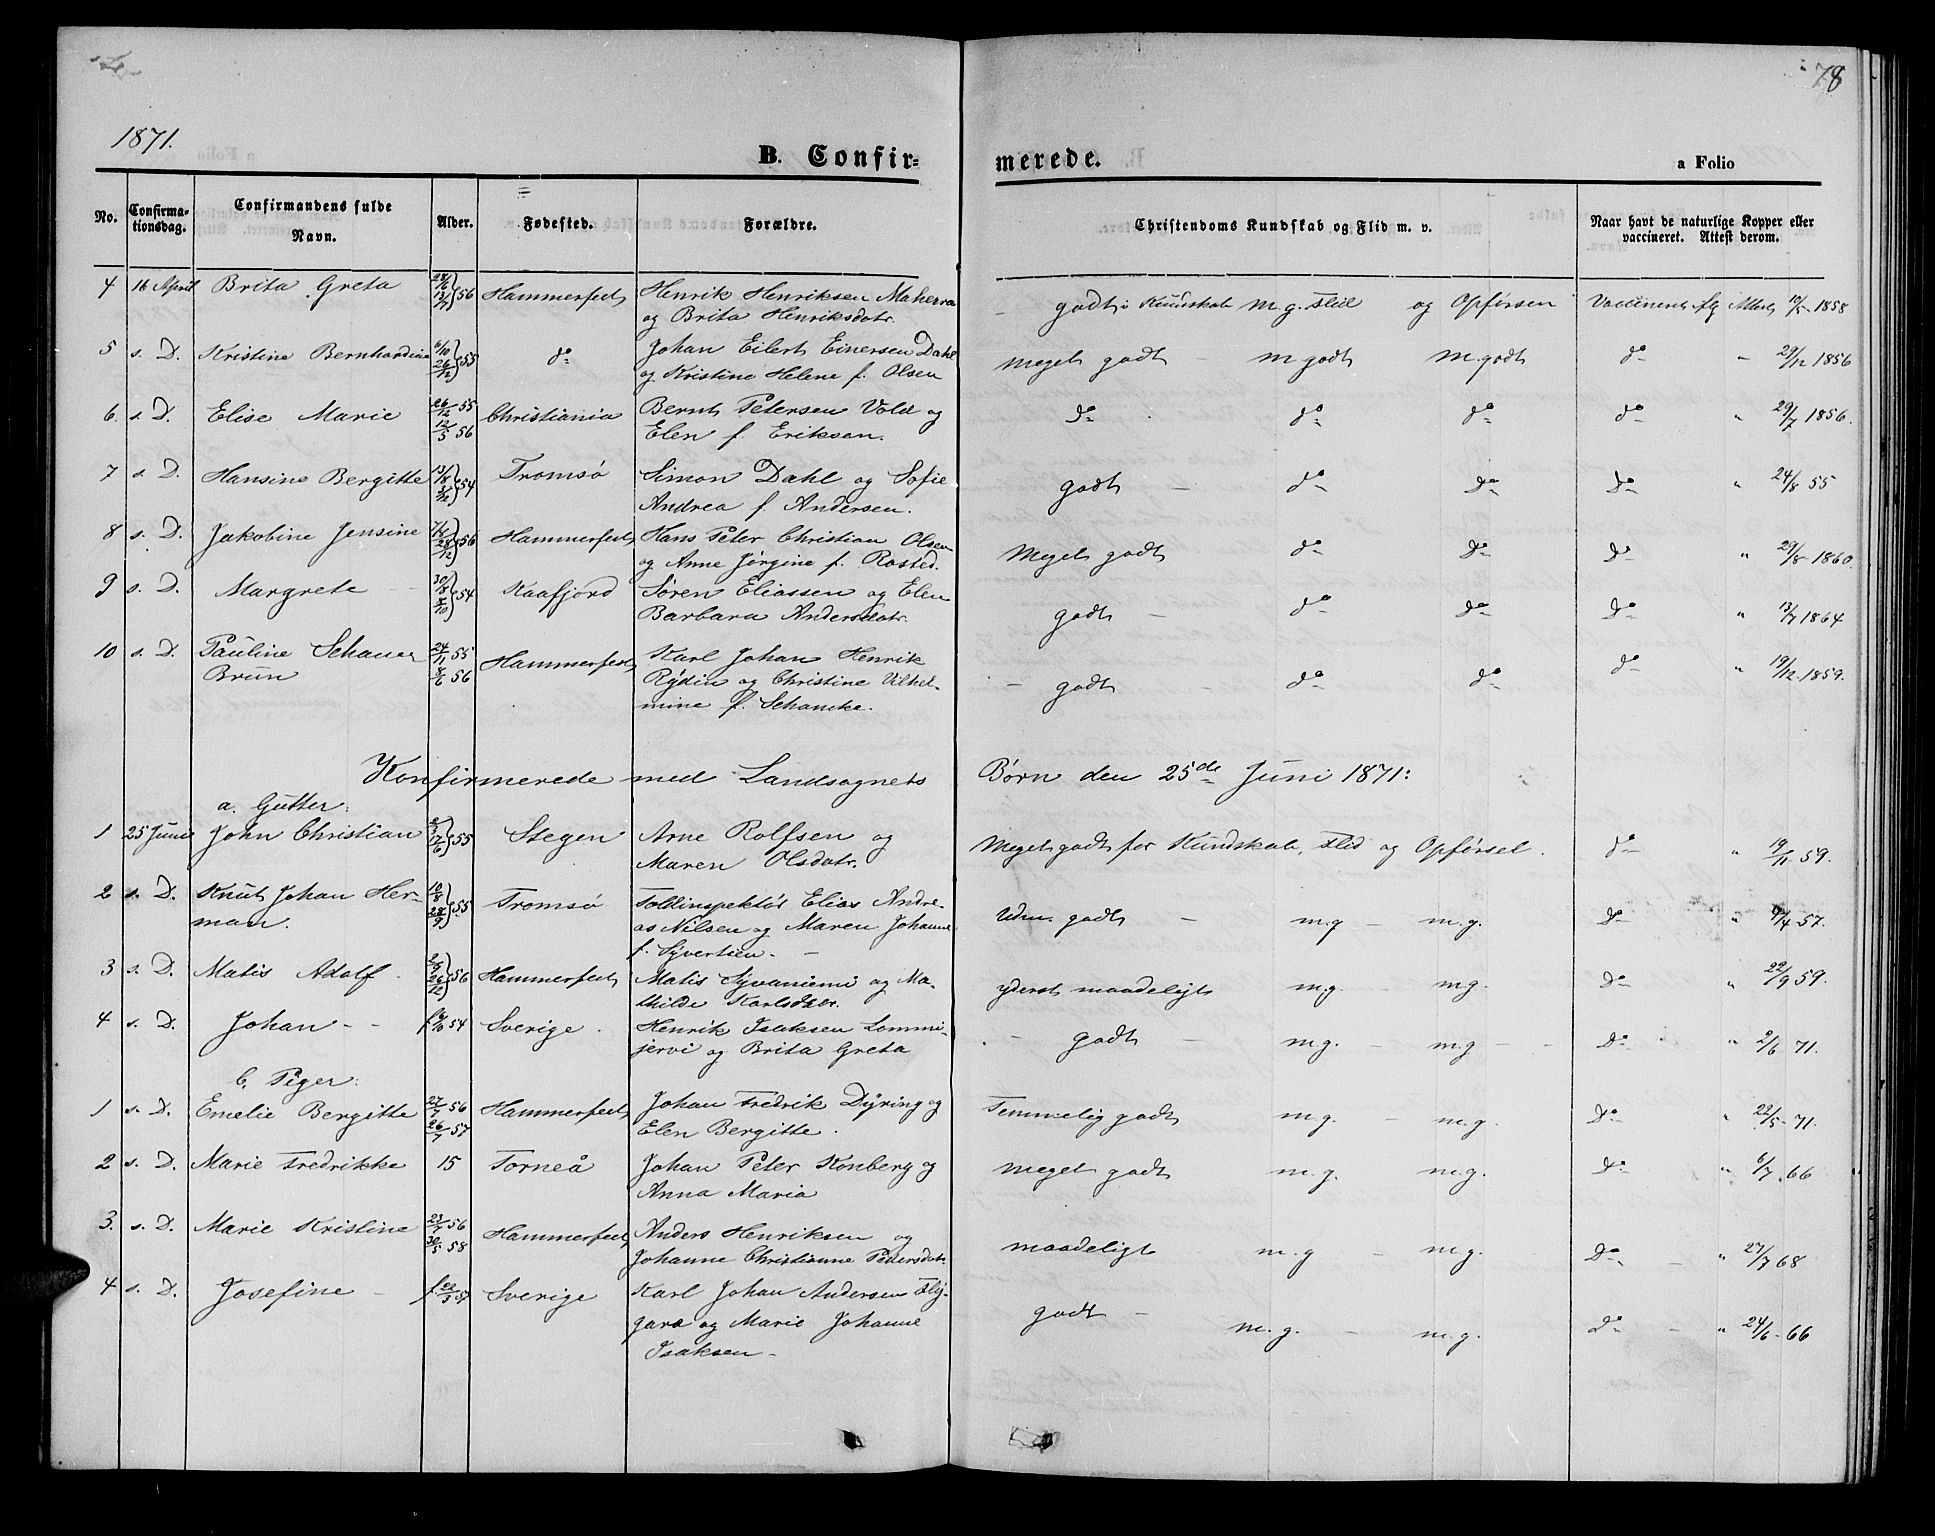 78
1871.
B. Confirmerede.
a Folio
No. Confirmationsdag. Confirmandens fulde Navn. Alder. Fødested. Forældre. Christendoms Kundskab og Flid m. v. Naar havt de naturlige Kopper eller vaccineret. Attest derom.
4 16 April Brita Greta 28/6 13/7 } 56 Hammerfest Henrik Henriksen Maherra godt i Kundskab m. g. Flid og Opførsen Vaccineret flg Attest 10/5 1858
og Brita Henriksdatr.
5 s. D. Kristine Bernhardine 6/10 26/12 } 55 do Johan Eilert Einersen Dahl Meget godt – M godt M. godt do " 29/12 1856
og Kristine Helene f. Olsen
6. s. D. Elise Marie 26/12 55 Christiania Bernt Petersen Vold og Do do do do " 29/7 1856.
12/5 56 Elen f. Eriksen.
7 s. D. Hansine Bergitte 13/8 3/12 } 54 Tromsø Simon Dahl og Sofie godt – do do do " 24/8 55
Andrea f. Andersen.
8 s. D. Jakobine Jensine 28/12 } 56 Hammerfest Hans Peter Christian Olsen Meget godt do do do " 29/8 1860.
og Anne Jørgine f. Rosted.
9 s. D. Margrete – 30/8 8/10 } 54 Kaafjord Søren Eliassen og Elen godt – do do do " 13/7 1864
Barbara Andersdatr.
10 s. D. Pauline Schancke 24/11 55 Hammerfest Karl Johan Henrik – godt – do do do " 19/12 1859.
Brun 8/6 56 Rydin og Christine Vilhel-
mine f. Schancke.
Konfirmerede med Landsognets Børn den 25de Juni 1871:
a. Gutter:
1 25 Juni John Christian 17/6 } 55 Stegen Arne Rolfsen og Meget godt for Kundskab, Flid og Opførsel. do " 19/11 59.
Maren Olsdatr.
2 s. D. Knut Johan Her- 10/8 28/9 } 55 Tromsø Toldinspektør Elias Andre- Udm. godt – m. g – m. g. do " 9/4 57.
man. as Nilsen og Maren Johanne
f. Syvertsen. –
3 s. D. Matis Adolf. 26/12 } 56 Hammerfest Matis Syvaniemi og Ma- yderst maadeligt m. g. – m g. do " 22/9 59.
thilde Karlsdatr.
4 s. D. Johan – – 54 Sverige. Henrik Isaksen Lommi- – godt – m. g. – m. g – – do " 2/6 71.
jervi og Brita Greta
b. Piger:
1 s. D. Emelie Bergitte 27/7 56 Hammerfest Johan Fredrik Dyring og Temmelig godt m. g. – m. g. do " 22/5 71.
26/7 57 Elen Bergitte.
2 s. D. Marie Fredrikke 15 Torneå Johan Peter Konberg og Meget godt m. g. m. g. do " 6/7 66
Anna Maria
3. s. D. Marie Kristine 23/7 56 Hammerfest Anders Henriksen og maadeligt m. g – m. g. do – " 27/7 68
30/5 58 Johanne Christianne Pedersdatr.
4 s. D. Josefine – f. 22/3 57 Sverige Karl Johan Andersen Fly- godt – m. g. – m. g. do – " 24/6 66
gare og Marie Johanne
Isaksen –